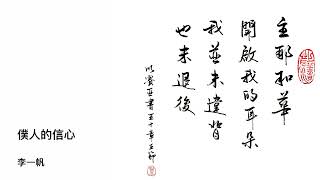 主耶和華
開啟我的耳朵
我並未違背
也未退後
以賽亞書五十章五節
僕人的信心
李一帆